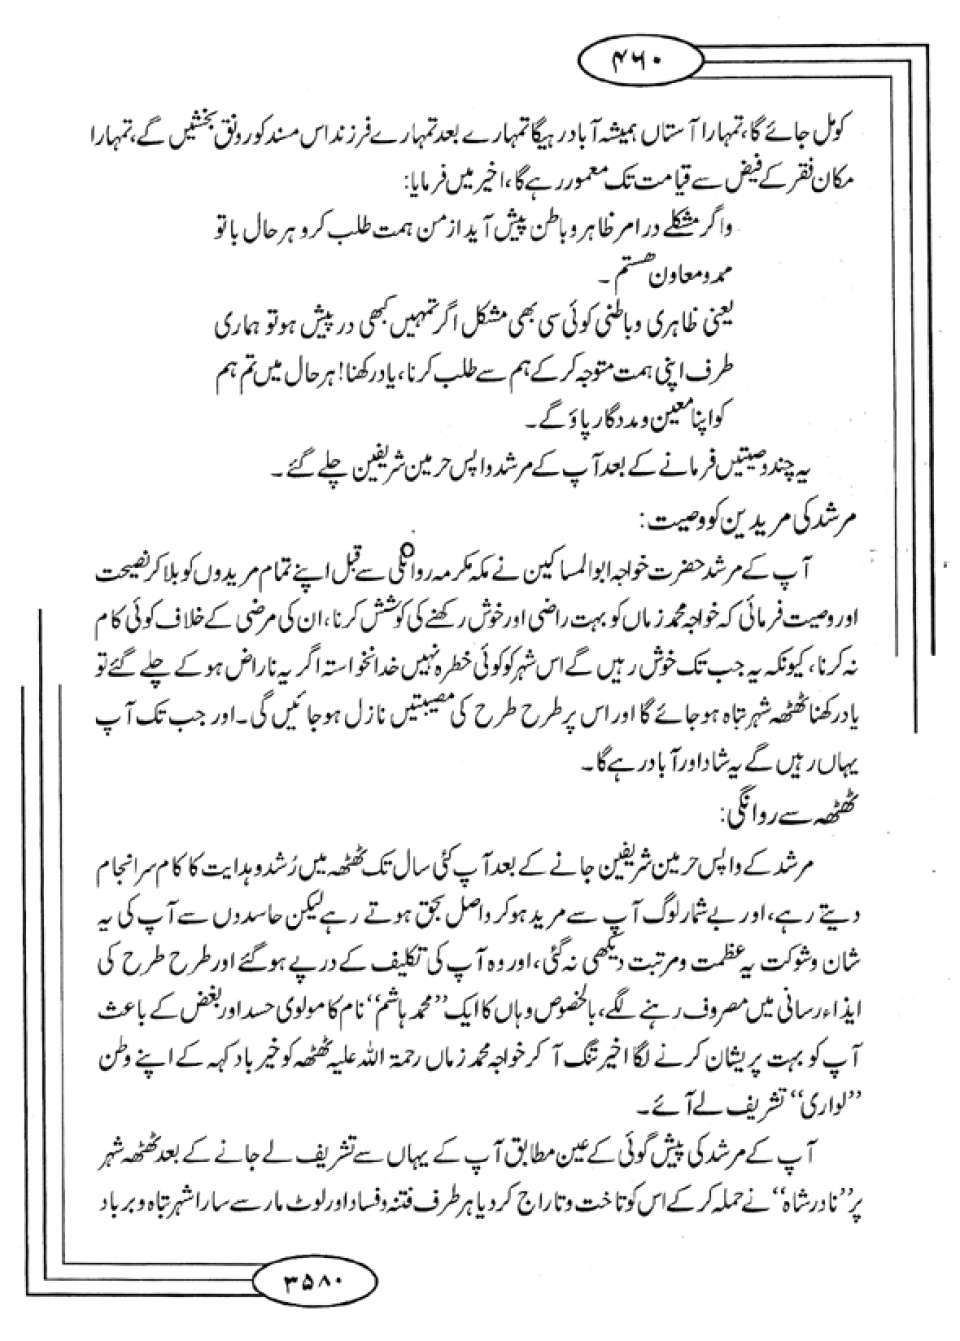 ۴۶۰
کو مل جائے گا، تمہارا آستاں ہمیشہ آباد رہیگا تمہارے بعد تمہارے فرزند اس مسند کو رونق بخشیں گے، تمہارا
مکان فقر کے فیض سے قیامت تک معمور رہے گا، اخیر میں فرمایا:
واگر مشکلے در امر ظاہر و باطن پیش آید از من ہمت طلب کرو ہر حال باتو
ممد و معاون ھستم ۔
یعنی ظاہری و باطنی کوئی سی بھی مشکل اگر تمہیں کبھی در پیش ہو تو ہماری
طرف اپنی ہمت متوجہ کر کے ہم سے طلب کرنا، یاد رکھنا! ہر حال میں تم ہم
کو اپنا معین و مددگار پاؤ گے۔
یہ چند وصیتیں فرمانے کے بعد آپ کے مرشد واپس حرمین شریفین چلے گئے۔
مرشد کی مریدین کو وصیت:
آپ کے مرشد حضرت خواجہ ابوالمساکین نے مکہ مکرمہ روانگی سے قبل اپنے تمام مریدوں کو بلا کر نصیحت
اور وصیت فرمائی کہ خواجہ محمد زماں کو بہت راضی اور خوش رکھنے کی کوشش کرنا، ان کی مرضی کے خلاف کوئی کام
نہ کرنا، کیونکہ یہ جب تک خوش رہیں گے اس شہر کو کوئی خطرہ نہیں خدانخواستہ اگر یہ ناراض ہو کے چلے گئے تو
یاد رکھنا ٹھٹھہ شہر تباہ ہو جائے گا اور اس پر طرح طرح کی مصیبتیں نازل ہو جائیں گی۔ اور جب تک آپ
یہاں رہیں گے یہ شاد اور آباد رہے گا۔
ٹھٹھہ سے روانگی:
مرشد کے واپس حرمین شریفین جانے کے بعد آپ کئی سال تک ٹھٹھہ میں رُشد و ہدایت کا کام سرانجام
دیتے رہے، اور بے شمار لوگ آپ سے مرید ہو کر واصل بحق ہوتے رہے لیکن حاسدوں سے آپ کی یہ
شان و شوکت یہ عظمت و مرتبت دیکھی نہ گئی، اور وہ آپ کی تکلیف کے درپے ہو گئے اور طرح طرح کی
ایذاء رسانی میں مصروف رہنے لگے، بالخصوص وہاں کا ایک ’’محمد ہاشم‘‘ نام کا مولوی حسد اور بغض کے باعث
آپ کو بہت پریشان کرنے لگا اخیر تنگ آ کر خواجہ محمد زماں رحمۃ اللہ علیہ ٹھٹھہ کو خیر باد کہہ کے اپنے وطن
’’لواری‘‘ تشریف لے آئے۔
آپ کے مرشد کی پیش گوئی کے عین مطابق آپ کے یہاں سے تشریف لے جانے کے بعد ٹھٹھہ شہر
پر ’’نادر شاہ‘‘ نے حملہ کر کے اس کو تاخت و تاراج کر دیا ہر طرف فتنہ و فساد اور لوٹ مار سے سارا شہر تباہ و برباد
۳۵۸۰